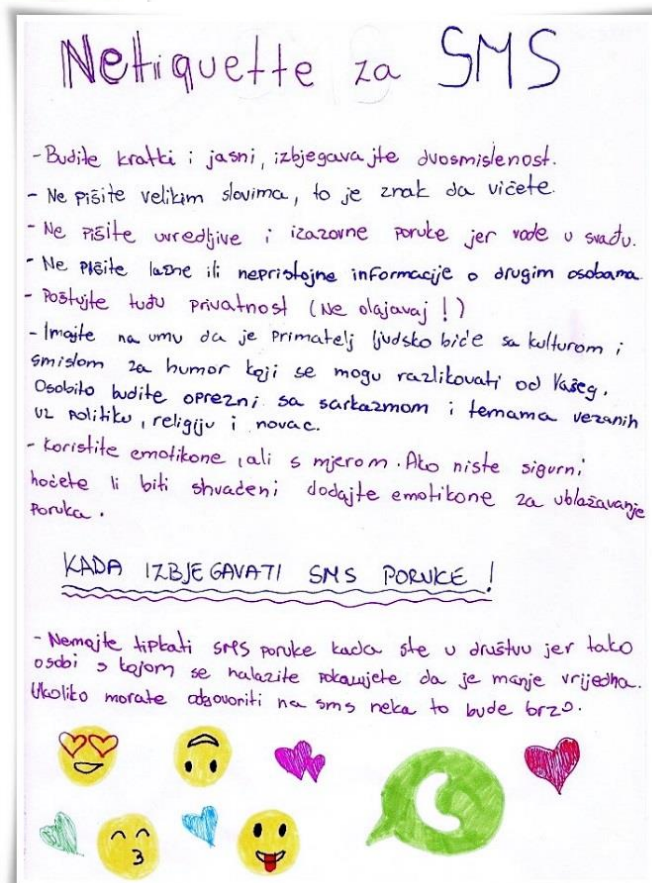 Netiquette za SMS
-Budite kratki i jasni, izbjegavajte dvosmislenost.
- Ne pišite velikim slovima, to je znak da vičete.
- Ne pišite uvredljive i izazovne poruke jer vode u svađu.
- Ne pišite lažne ili nepristojne informacije o drugim osobama
- Poštujte tuđu privatnost (Ne olajavaj!)
- Imajte na umu da je primatelj ljudsko biće sa kulturom i
smislom za humor koji se mogu razlikovati od Vašeg.
Osobito budite oprezni sa sarkazmom i temama vezanih
uz politiku, religiju i novac.
- Koristite emotikone, ali s mjerom. Ako niste sigurni
hoćete li biti shvaćeni dodajte emotikone za ublažavanje
poruka.
KADA IZBJEGAVATI SMS PORUKE!
- Nemojte tipkati SMS poruke kada ste u društvu jer tako
osobi s kojom se nalazite pokazujete da je manje vrijedna.
Ukoliko morate odgovoriti na sms neka to bude brzo.